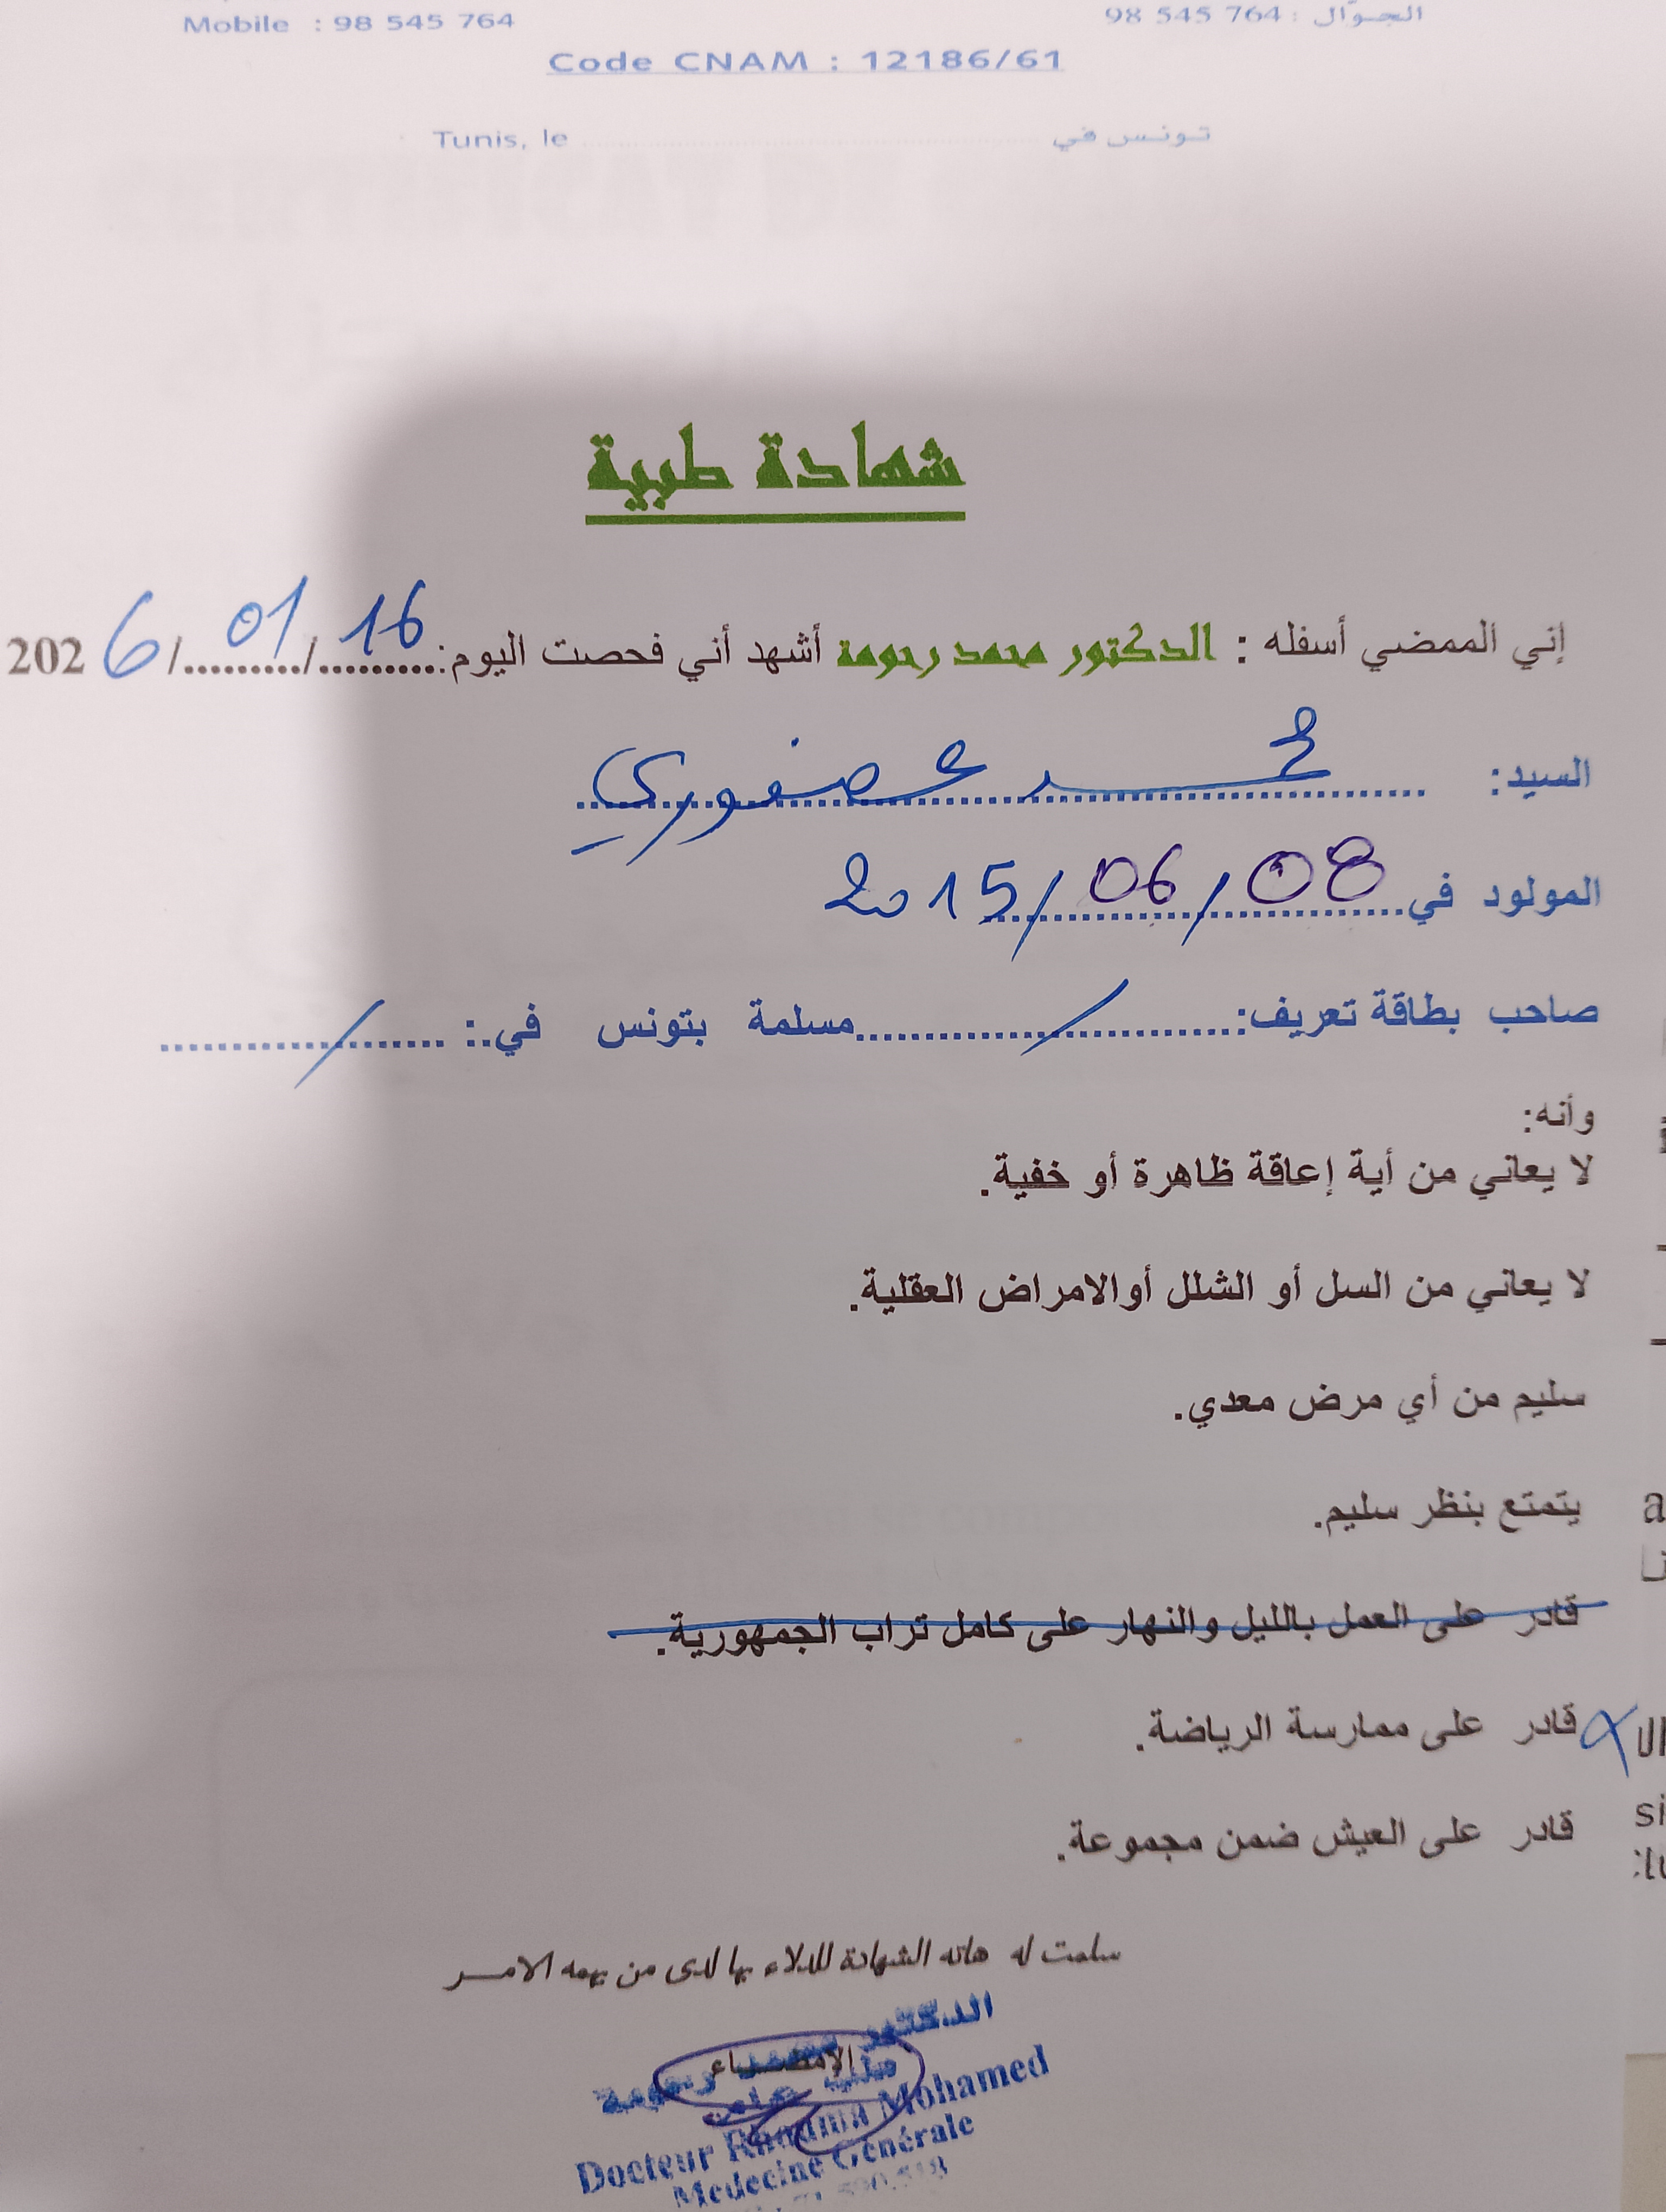 Mobile : 98 545 764
الجوّال : 98 545 764
Code CNAM : 12186/61
Tunis, le
تونس في
شهادة طبية
إني الممضي أسفله : الدكتور محمد رحومة أشهد أني فحصت اليوم: 16/01/2026
السيد: محمد عصفوري
المولود في 08/06/2015
صاحب بطاقة تعريف: / مسلمة بتونس في.: /
وأنه:
لا يعاني من أية إعاقة ظاهرة أو خفية.
لا يعاني من السل أو الشلل أوالامراض العقلية.
سليم من أي مرض معدي.
يتمتع بنظر سليم.
قادر على العمل بالليل والنهار على كامل تراب الجمهورية.
قادر على ممارسة الرياضة.
قادر على العيش ضمن مجموعة.
سلمت له هاته الشهادة للادلاء بها لدى من يهمه الامر
الدكتور محمد رحومة
الإمضاء
Docteur Rhouma Mohamed
Médecine Générale